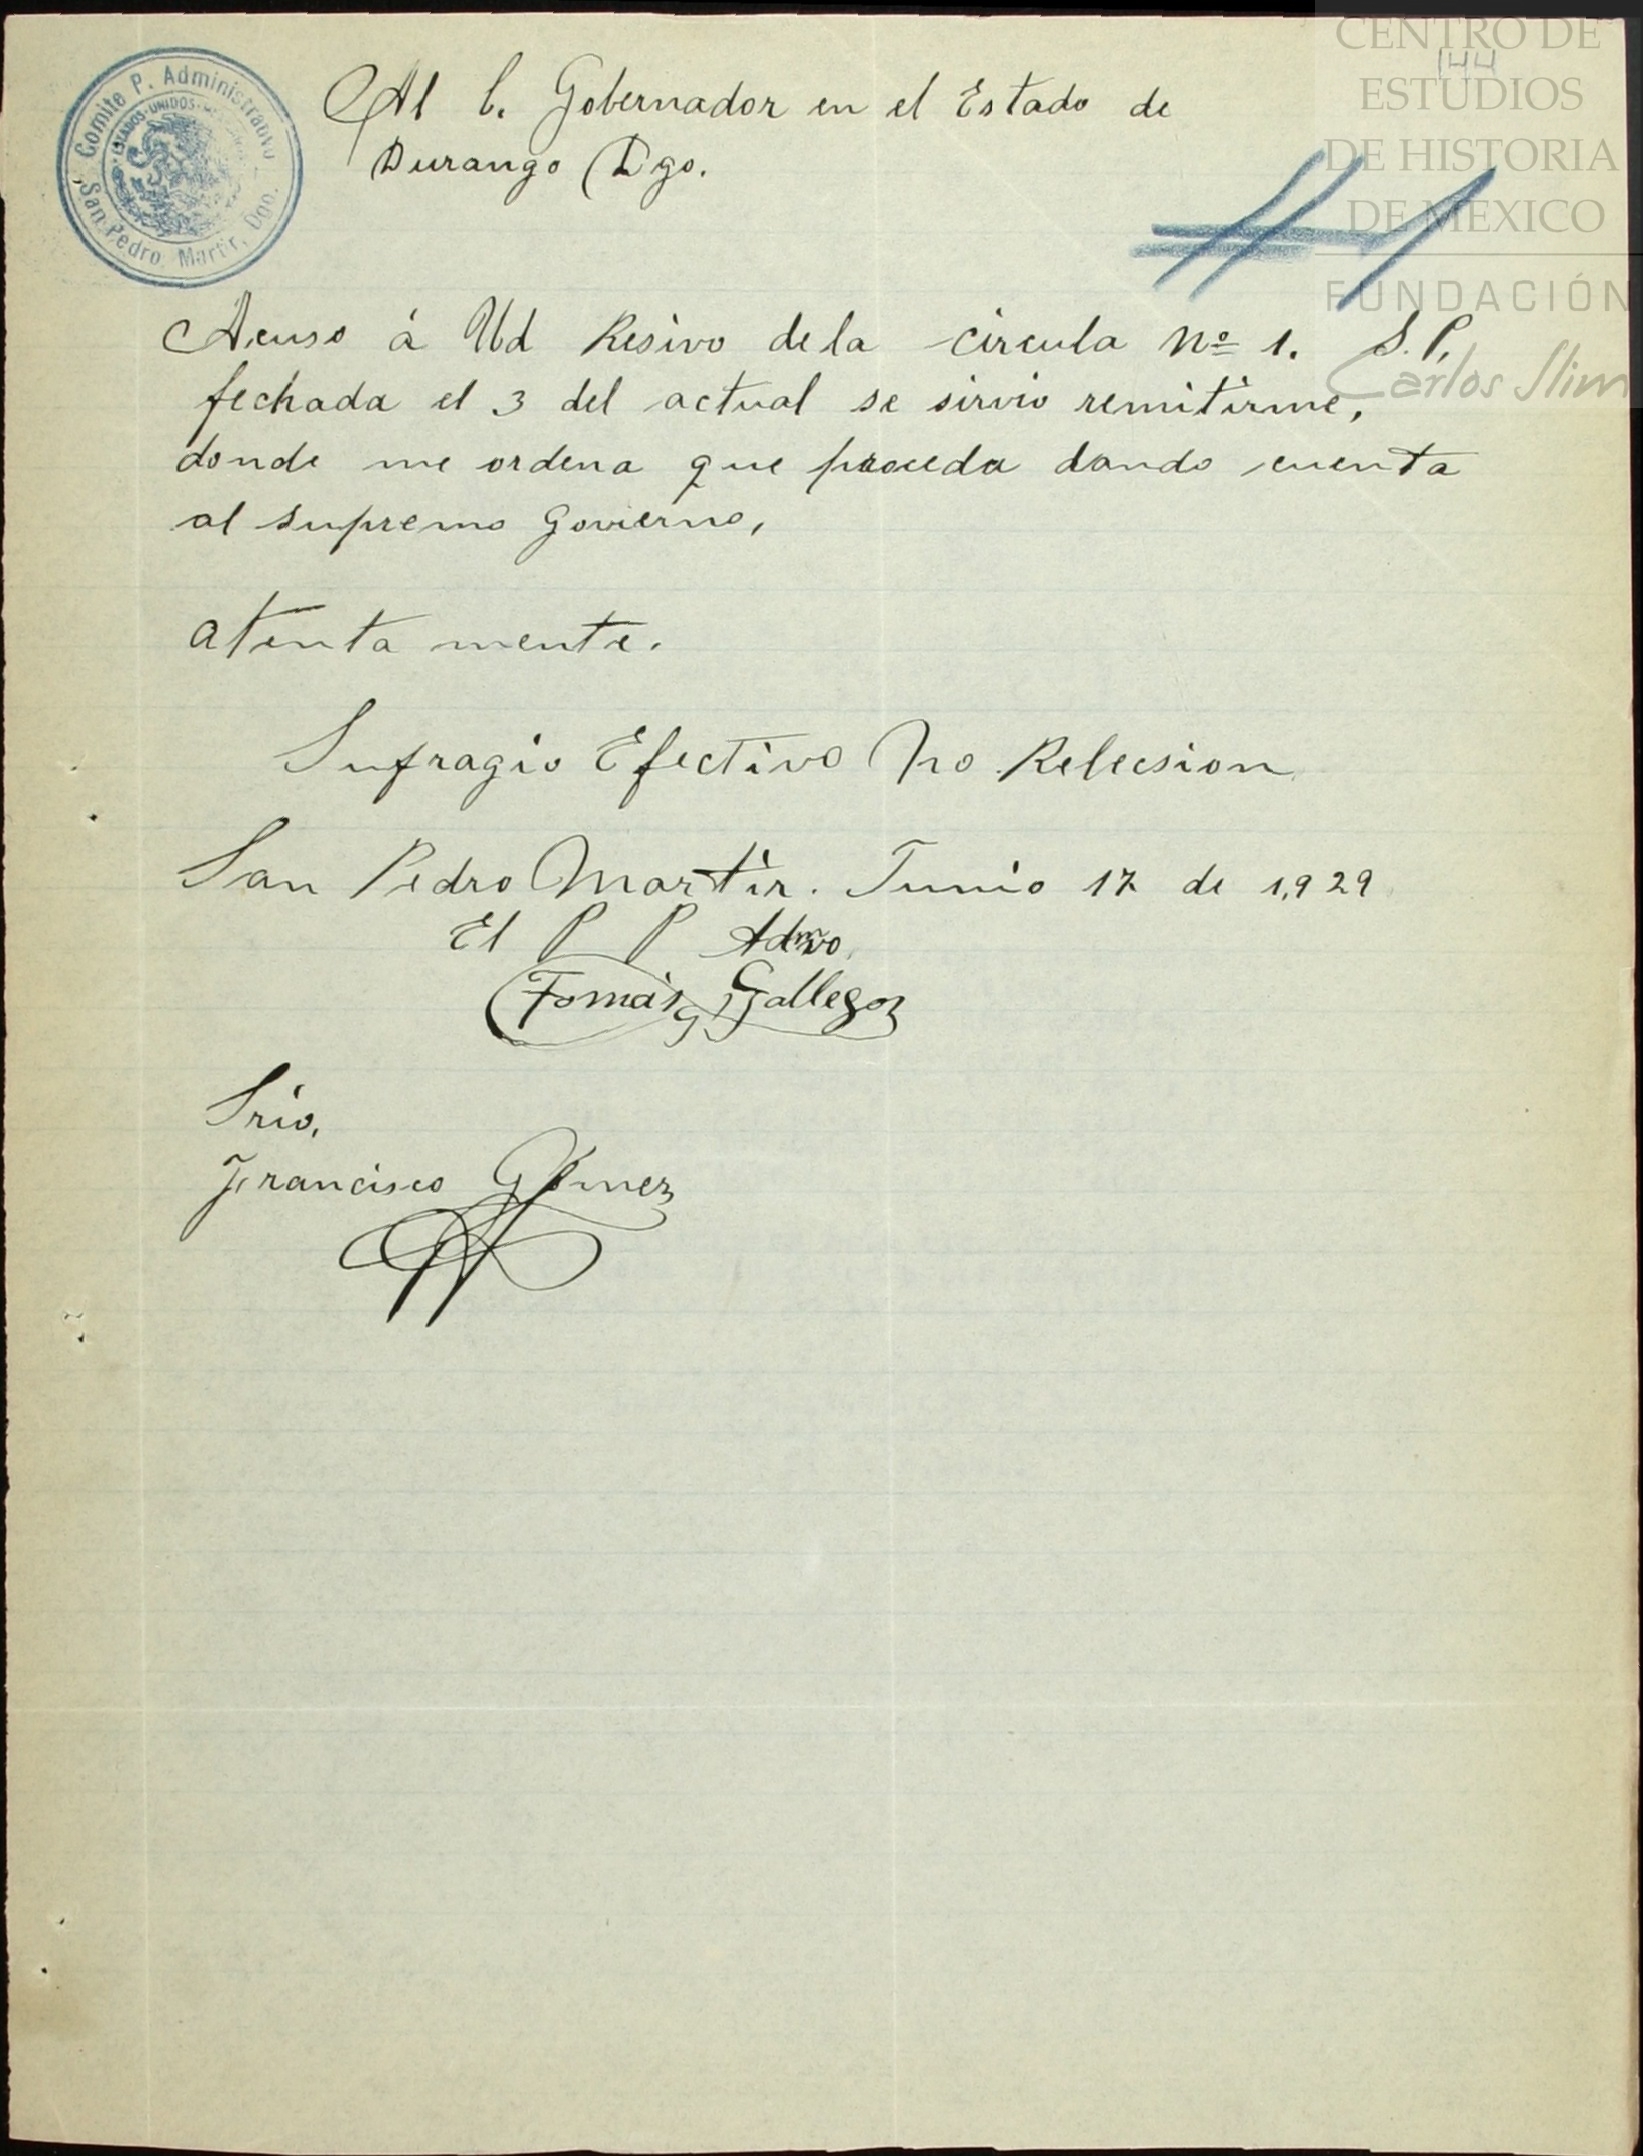 CENTRO DE
144
ESTUDIOS
DE HISTORIA
DE MEXICO
FUNDACIÓN
Carlos Slim
Comite P. Administrativo
ESTADOS-UNIDOS
San Pedro Martir, Dgo.
Al C. Gobernador en el Estado de
Durango Dgo.
Acuso á Ud Resivo de la circula Nº 1. S. P.
fechada el 3 del actual se sirvio remitirme,
donde me ordena que proceda dando cuenta
al supremo Govierno,
atenta mente.
Sufragio Efectivo No Relecsion
San Pedro Martir. Junio 17 de 1,929
El P P Admvo.
Tomás Gallegoz
Srio.
Francisco Gómez